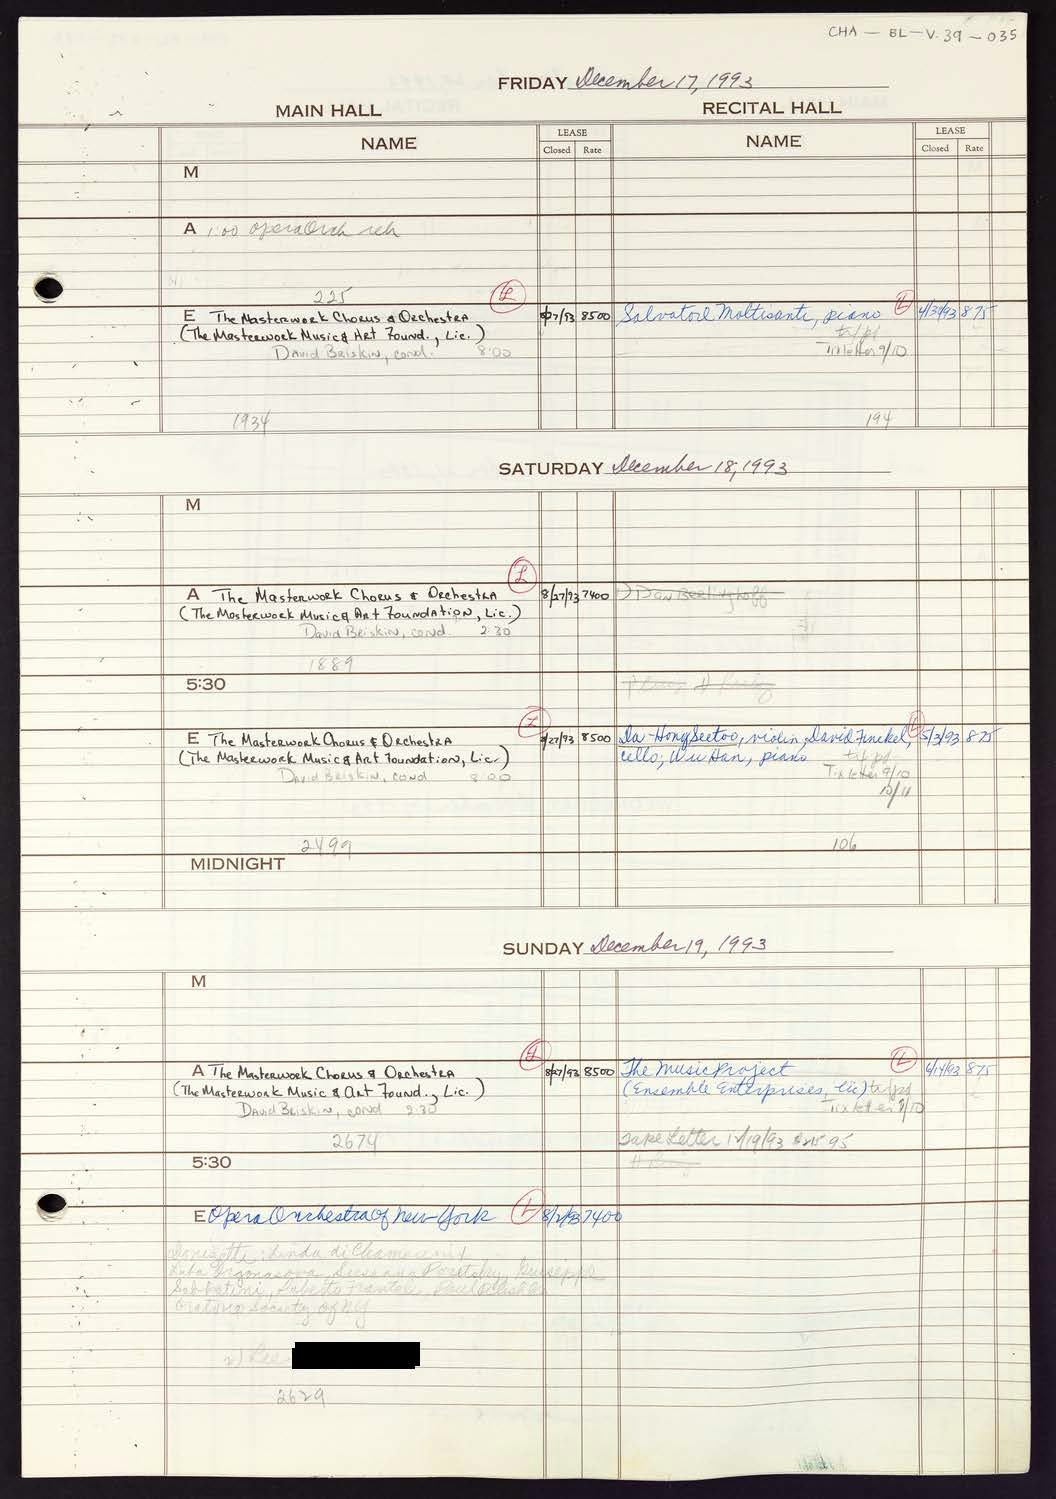 CHA - BL - V. 39 - 035
FRIDAY December 17, 1993
MAIN HALL
RECITAL HALL
NAME
LEASE
Closed Rate
NAME
LEASE
Closed Rate
M
A 1:00 Opera Orch reh
225
E The Masterwork Chorus & Orchestra
(L)
8/27/93 8500
(The Masterwork Music & Art Found., Lic.)
David Briskin, cond. 8:00
1934
Salvatore Moltisanti, piano
(L)
8 75
Tix letter 9/10
194
SATURDAY December 18, 1993
M
(L)
A The Masterwork Chorus & Orchestra
8/27/93 7400
(The Masterwork Music & Art Foundation, Lic.)
David Briskin, cond. 2:30
1889
5:30
(L)
E The Masterwork Chorus & Orchestra
8/27/93 8500
(The Masterwork Music & Art Foundation, Lic.)
David Briskin, cond 8:00
2499
Da-Hong Seetoo, violin, David Finckel,
(L)
5/3/93 875
cello; Wu Han, piano
Tix letter 9/10
10/11
106
MIDNIGHT
SUNDAY December 19, 1993
M
(L)
A The Masterwork Chorus & Orchestra
8/27/93 8500
(The Masterwork Music & Art Found., Lic.)
David Briskin, cond 2:30
2674
The Music Project
(L)
6/14/93 875
(Ensemble Enterprises, Lic)
Tix letter 9/10
Tape Letter 12/19/93 95
5:30
E Opera Orchestra Of New York
(L)
8/2/93 7400
Donizetti: Linda di Chamounix
Giuseppe
Sabbatini, Paul Plishka
Oratorio Society of NY
2629